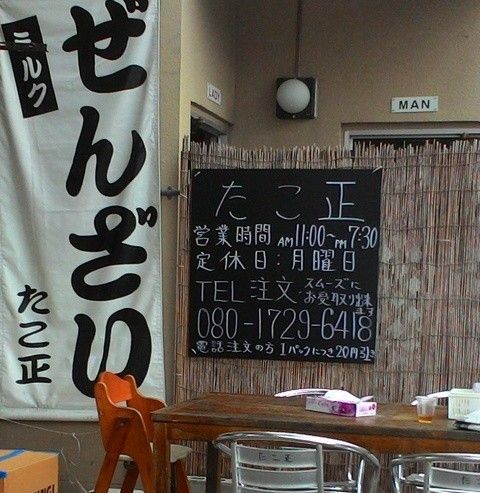 ミルク
ぜんざい
たこ正
LADY
MAN
たこ正
営業時間 AM11:00~PM7:30
定休日:月曜日
TEL注文 スムーズに
お受取り出来
ます
080-1729-6418
電話注文の方 1パックにつき20円引き
たこ正